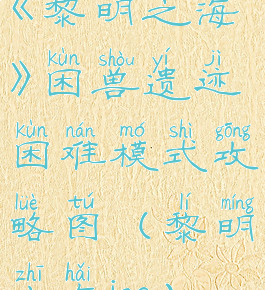 《黎明之海
kùn shòu yí jì
》困兽遗迹
kùn nán mó shì gōng
困难模式攻
lüè tú lí míng
略图（黎明
zhī hǎi